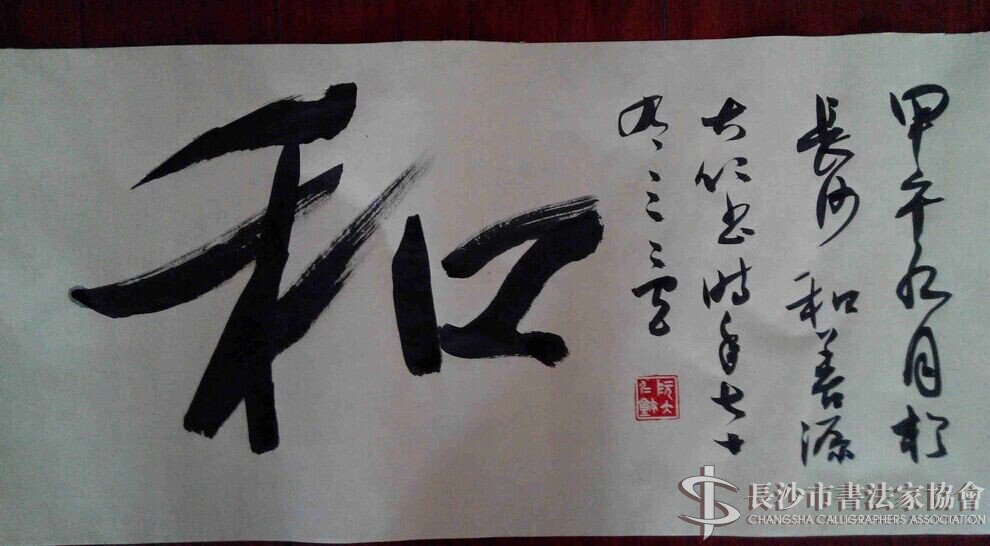 甲午九月於
長沙 和善源
大仁书時年七十
有三
和
阮大仁
長沙市書法家協會
CHANGSHA CALLIGRAPHERS ASSOCIATION